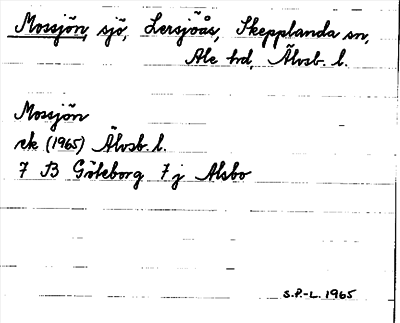 Mossjön, sjö, Lersjöås, Skepplanda sn,
Ale hd, Älvsb. l.
Mossjön
ek (1965) Älvsb. l.
7 B Göteborg 7 j Alsbo
S.P.-L. 1965